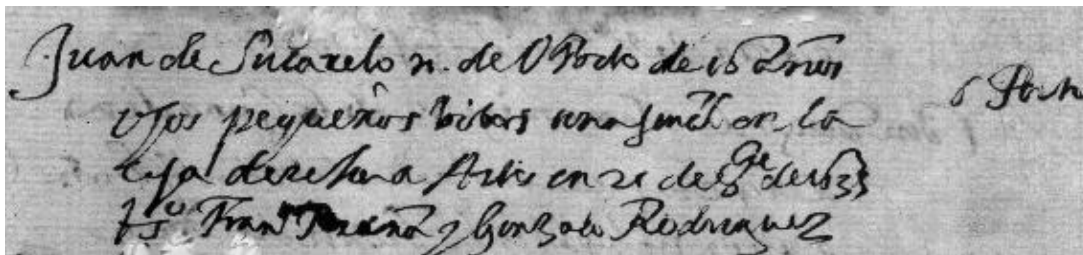 Juan de n. de OPorto de 16 años
ojos pequeños bibos una señal en la
ceja derecha Artes en 21 de 8re de 1633
tsº Franco y Gonzalo Rodriguez